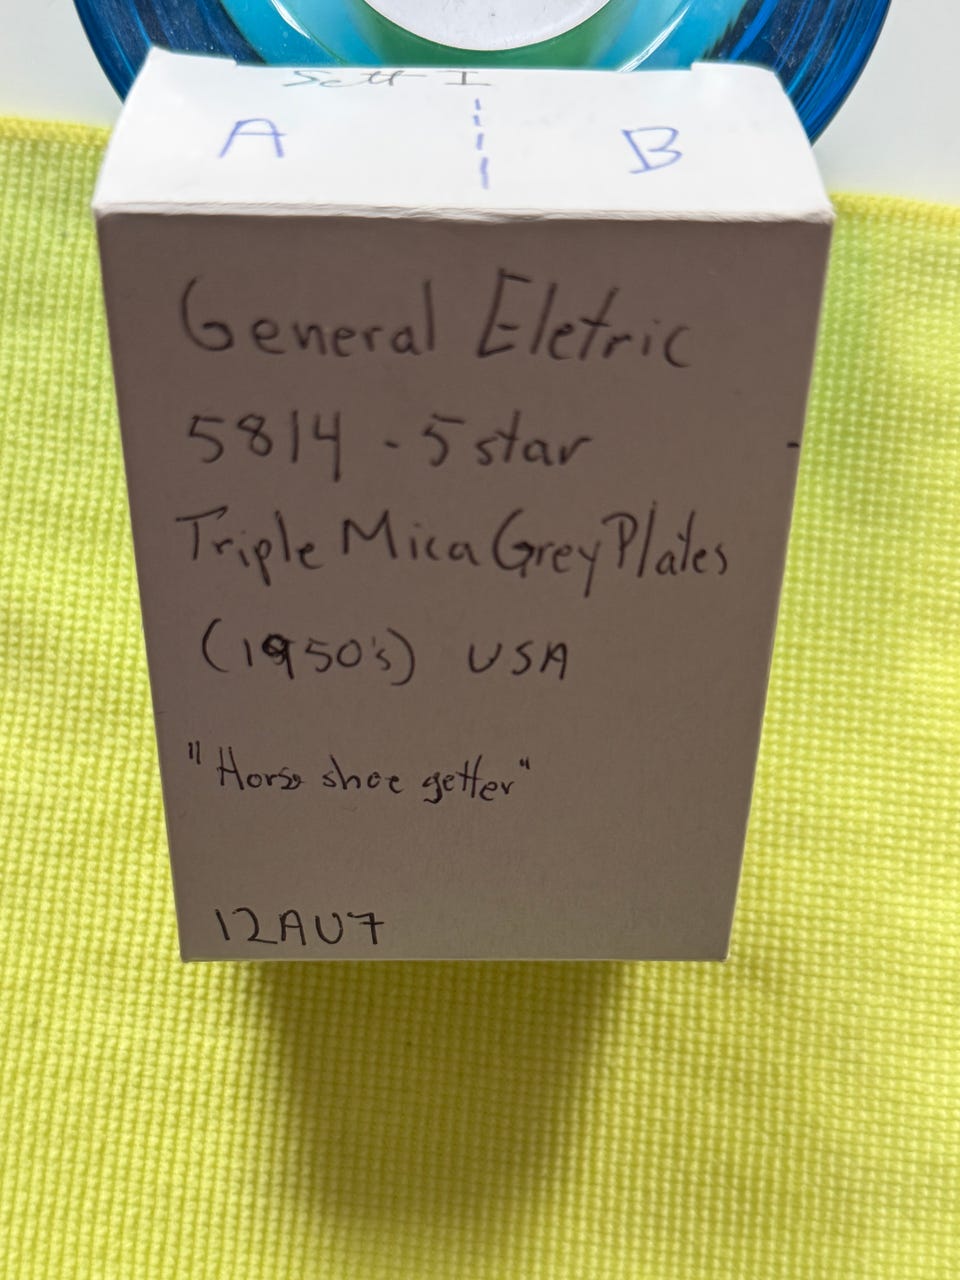 Sett I
A B
General Eletric
5814 - 5 star
Triple Mica Grey Plates
(1950's) USA
"Horse shoe getter"
12AU7